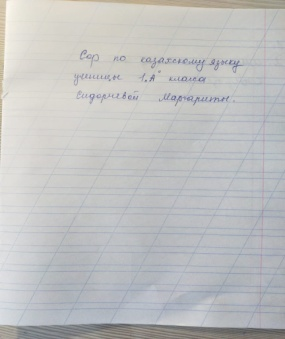 Сор по казахскому языку
ученицы 1 "А" класса
Сидорчевой Маргариты.